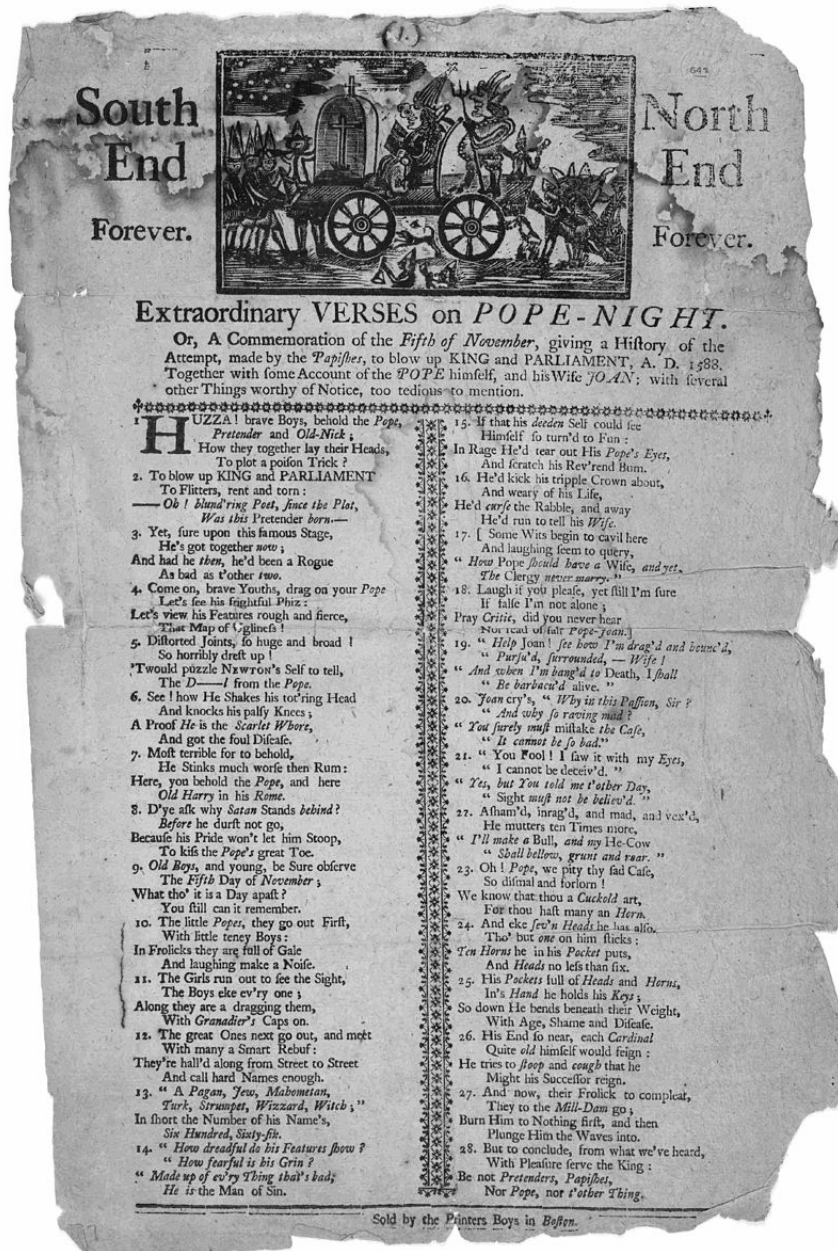 (1.)
642
South
End
Forever.
North
End
Forever.
Extraordinary VERSES on POPE-NIGHT.
Or, A Commemoration of the Fifth of November, giving a Hiſtory of the
Attempt, made by the Papiſhes, to blow up KING and PARLIAMENT, A. D. 1588.
Together with ſome Account of the POPE himſelf, and his Wife JOAN; with ſeveral
other Things worthy of Notice, too tedious to mention.
1 HUZZA! brave Boys, behold the Pope,
Pretender and Old-Nick;
How they together lay their Heads,
To plot a poiſon Trick?
2. To blow up KING and PARLIAMENT
To Flitters, rent and torn:
—— Oh! blund'ring Poet, ſince the Plot,
Was this Pretender born.—
3. Yet, ſure upon this famous Stage,
He's got together now;
And had he then, he'd been a Rogue
As bad as t'other two.
4. Come on, brave Youths, drag on your Pope
Let's ſee his frightful Phiz:
Let's view his Features rough and fierce,
That Map of Uglineſs!
5. Diſtorted Joints, ſo huge and broad!
So horribly dreſt up!
'Twould puzzle NEWTON's Self to tell,
The D——l from the Pope.
6. See! how He Shakes his tot'ring Head
And knocks his palſy Knees;
A Proof He is the Scarlet Whore,
And got the foul Diſeaſe.
7. Moſt terrible for to behold,
He Stinks much worſe then Rum:
Here, you behold the Pope, and here
Old Harry in his Rome.
8. D'ye aſk why Satan Stands behind?
Before he durſt not go,
Becauſe his Pride won't let him Stoop,
To kiſs the Pope's great Toe.
9. Old Boys, and young, be Sure obſerve
The Fifth Day of November;
What tho' it is a Day apaſt?
You ſtill can it remember.
10. The little Popes, they go out Firſt,
With little teney Boys:
In Frolicks they are full of Gale
And laughing make a Noiſe.
11. The Girls run out to ſee the Sight,
The Boys eke ev'ry one;
Along they are a dragging them,
With Granadier's Caps on.
12. The great Ones next go out, and meet
With many a Smart Rebuf:
They're hall'd along from Street to Street
And call hard Names enough.
13. " A Pagan, Jew, Mahometan,
Turk, Strumpet, Wizzard, Witch;"
In ſhort the Number of his Name's,
Six Hundred, Sixty-ſix.
14. " How dreadful do his Features ſhow?
" How fearful is his Grin?
" Made up of ev'ry Thing that's bad;
He is the Man of Sin.
15. If that his deeden Self could ſee
Himſelf ſo turn'd to Fun:
In Rage He'd tear out His Pope's Eyes,
And ſcratch his Rev'rend Bum.
16. He'd kick his tripple Crown about,
And weary of his Life,
He'd curſe the Rabble, and away
He'd run to tell his Wife.
17. [ Some Wits begin to cavil here
And laughing ſeem to query,
" How Pope ſhould have a Wife, and yet,
The Clergy never marry."
18. Laugh if you pleaſe, yet ſtill I'm ſure
If falſe I'm not alone;
Pray Critic, did you never hear
Nor read of fair Pope-Joan.]
19. " Help Joan! ſee how I'm drag'd and bounc'd,
" Purſu'd, ſurrounded, — Wife!
" And when I'm bang'd to Death, I ſhall
" Be barbacu'd alive. "
20. Joan cry's, " Why in this Paſſion, Sir?
" And why ſo raving mad?
" You ſurely muſt miſtake the Caſe,
" It cannot be ſo bad."
21. " You Fool! I ſaw it with my Eyes,
" I cannot be deceiv'd. "
" Yes, but You told me t'other Day,
" Sight muſt not be believ'd. "
22. Aſham'd, inrag'd, and mad, and vex'd,
He mutters ten Times more,
" I'll make a Bull, and my He-Cow
" Shall bellow, grunt and roar. "
23. Oh! Pope, we pity thy ſad Caſe,
So diſmal and forlorn!
We know that thou a Cuckold art,
For thou haſt many an Horn.
24. And eke ſev'n Heads he has alſo,
Tho' but one on him ſticks:
Ten Horns he in his Pocket puts,
And Heads no leſs than ſix.
25. His Pockets full of Heads and Horns,
In's Hand he holds his Keys;
So down He bends beneath their Weight,
With Age, Shame and Diſeaſe.
26. His End ſo near, each Cardinal
Quite old himſelf would feign:
He tries to ſtoop and cough that he
Might his Succeſſor reign.
27. And now, their Frolick to compleat,
They to the Mill-Dam go;
Burn Him to Nothing firſt, and then
Plunge Him the Waves into.
28. But to conclude, from what we've heard,
With Pleaſure ſerve the King:
Be not Pretenders, Papiſhes,
Nor Pope, nor t'other Thing.
Sold by the Printers Boys in Boſton.